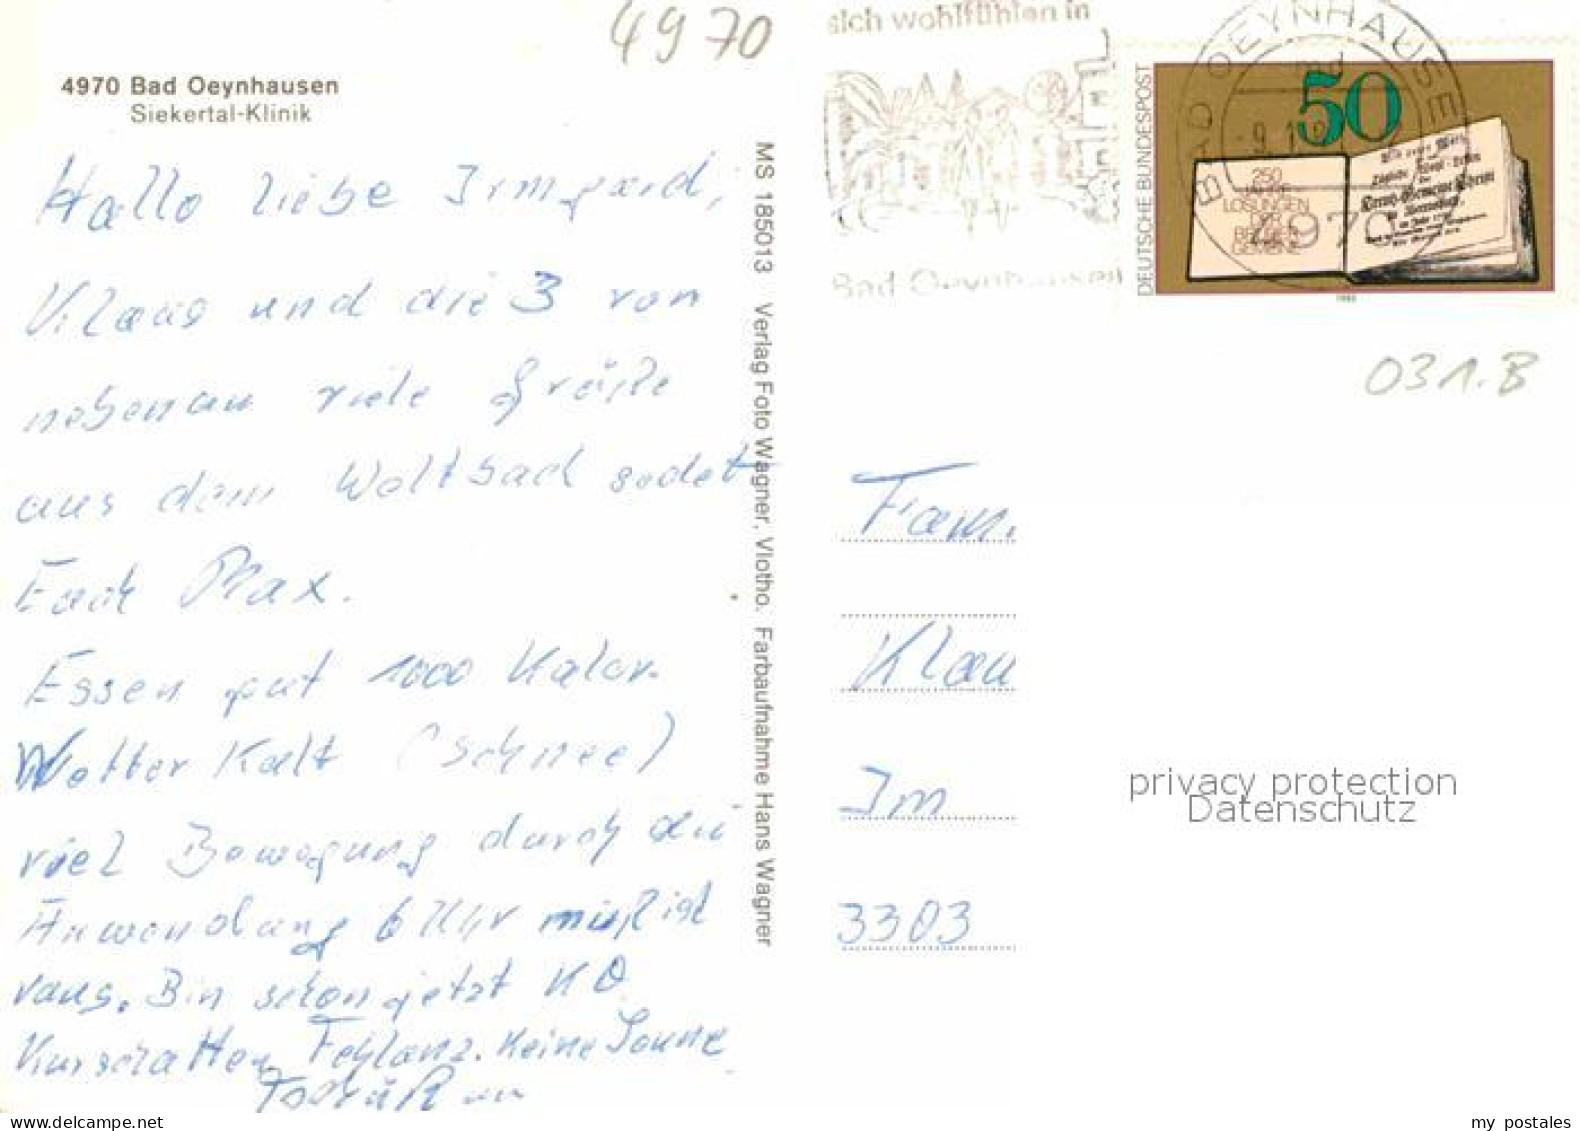 4970
4970 Bad Oeynhausen
Siekertal-Klinik
Hallo liebe Irmgard,
Klaus und die 3 von
nebenan viele Grüße
aus dem Weltbad sedet
Euch Max.
Essen gut 1000 Kalor.
Wetter Kalt (Schnee)
viel Bewegung durch die
Anwendung 6 Uhr müßt ist
raus. Bin schon jetzt KO
Kurschatten Fehlanz. Keine Sonne
Tschüß
MS 185013 Verlag Foto Wagner, Vlotho. Farbaufnahme Hans Wagner
sich wohlfühlen in
Bad Oeynhausen
BAD OEYNHAUSE
9.1
4970
DEUTSCHE BUNDESPOST
50
250
JAHRE
LOSUNGEN
DER
BRÜDER
GEMEINE
031.B
Fam.
Klau
Im
3303
privacy protection
Datenschutz
my postales